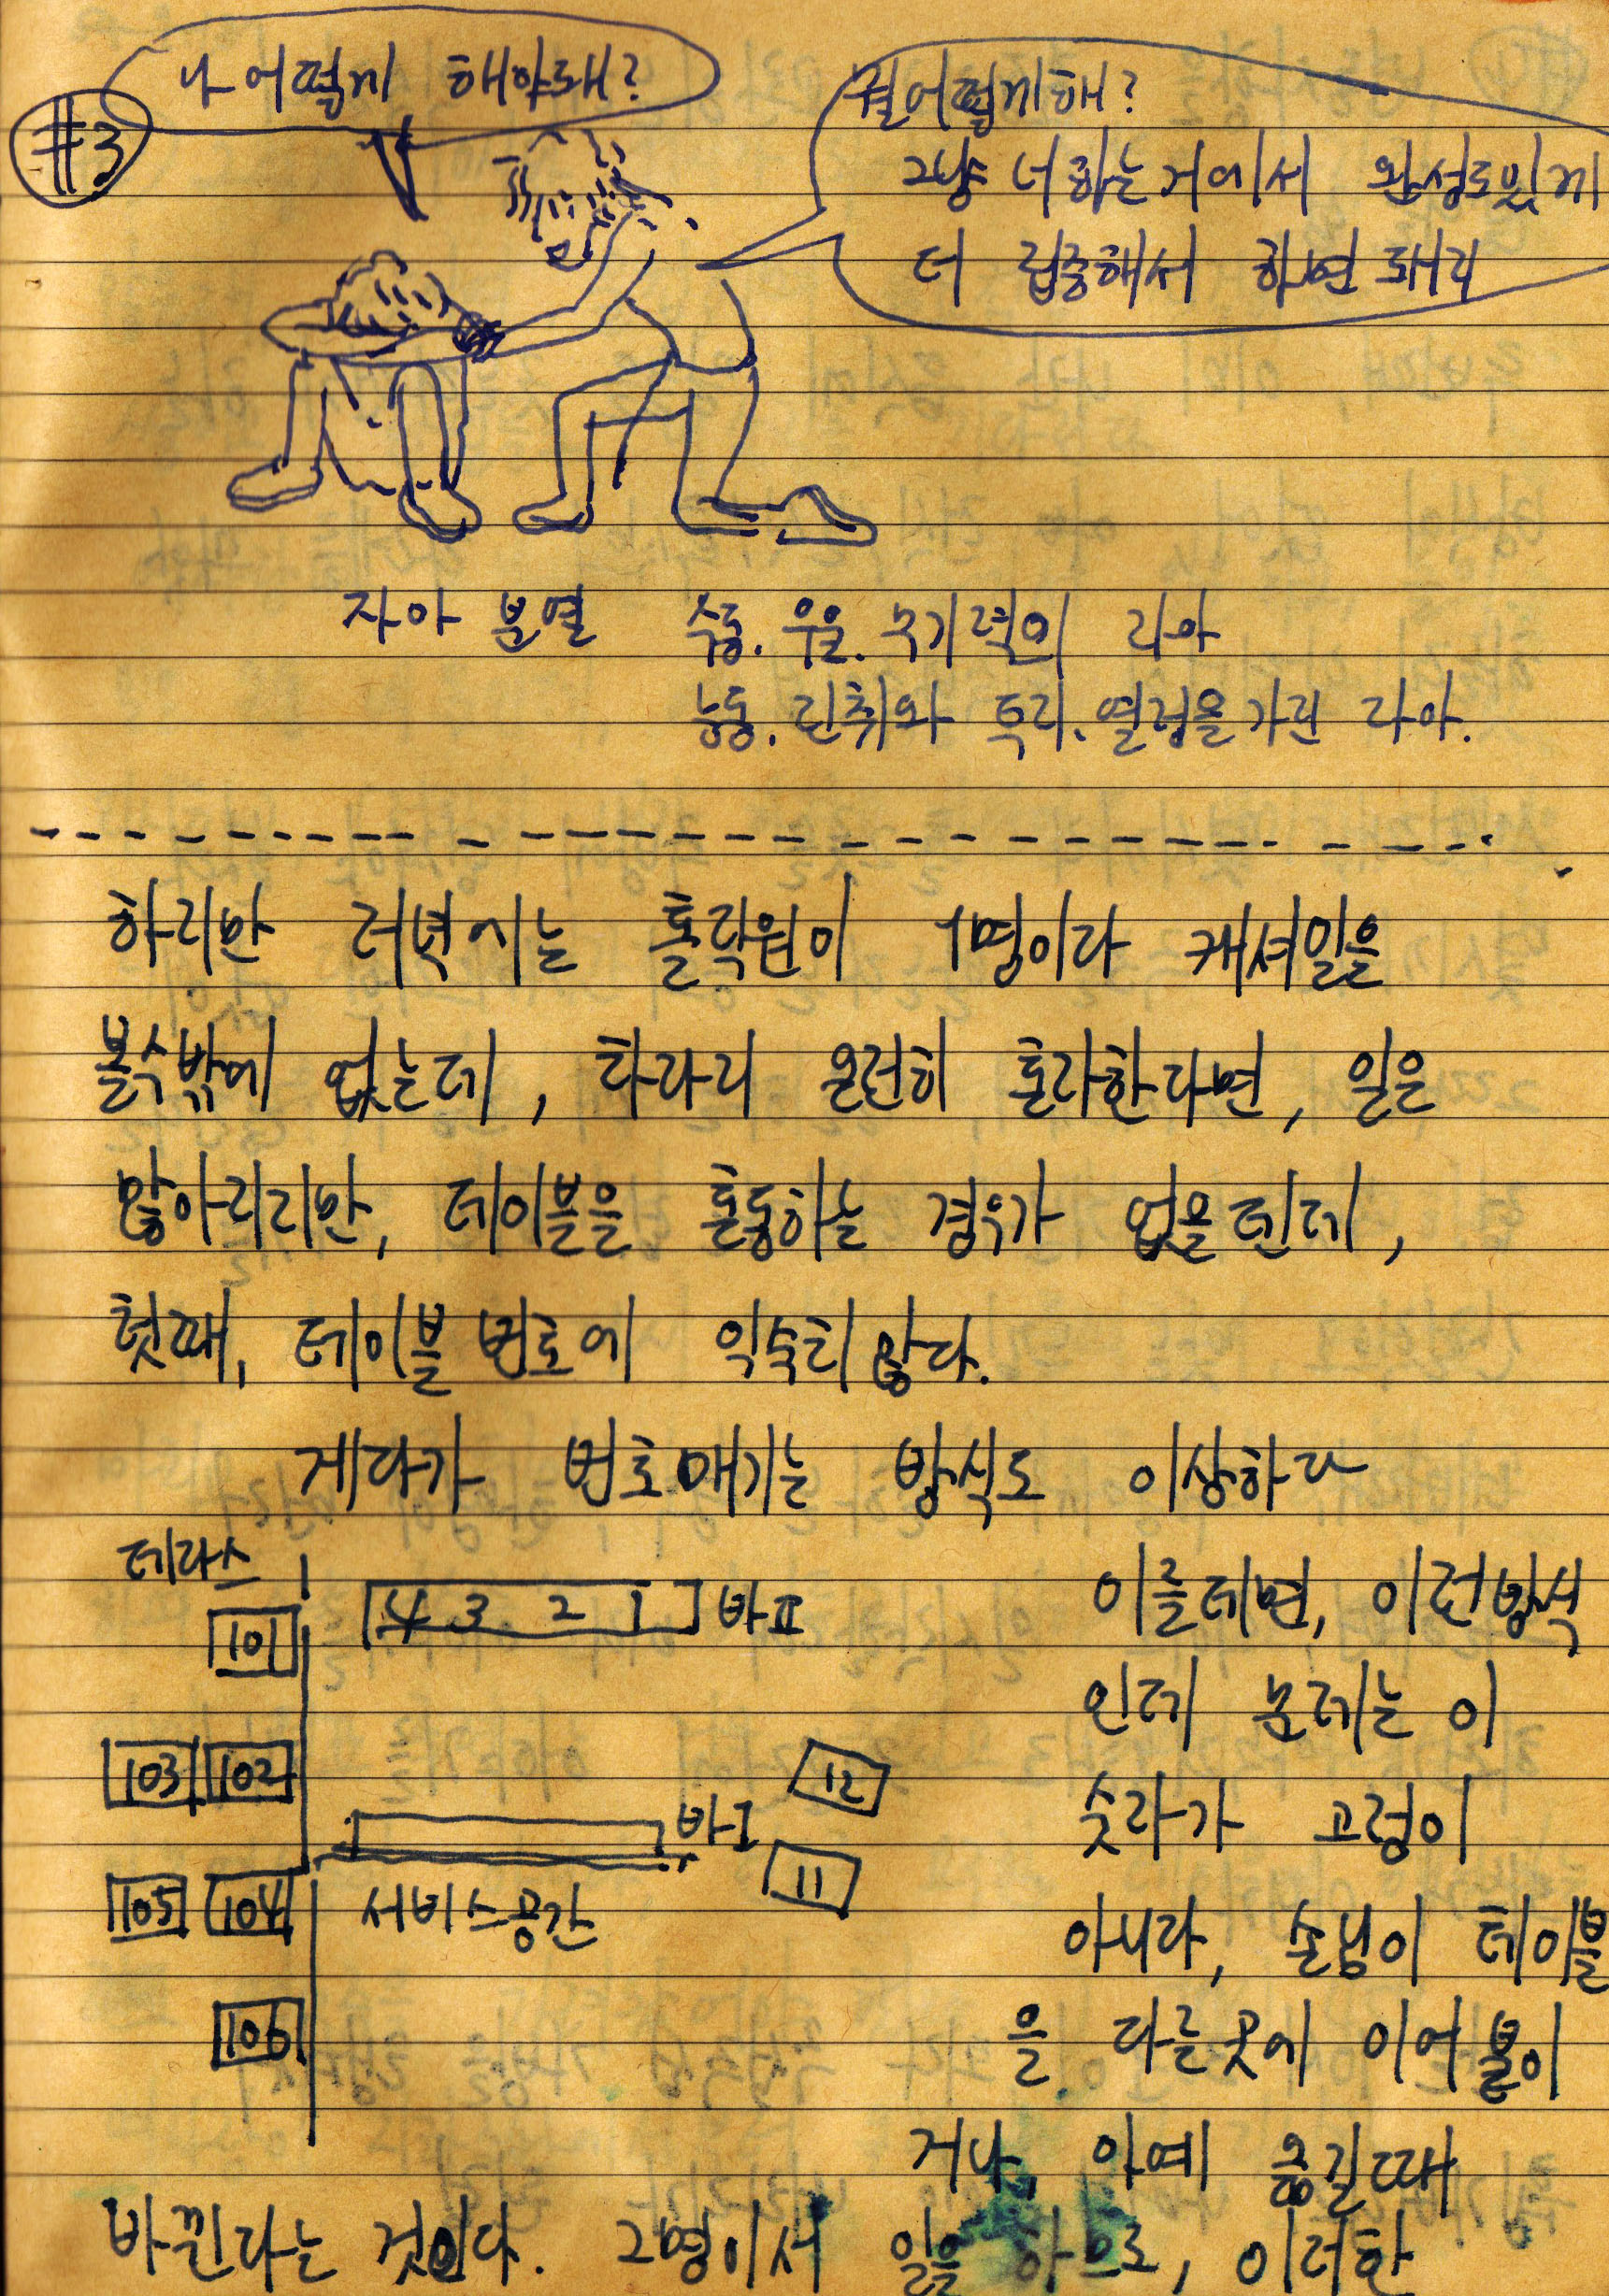 #3
나 어떻게 해야돼?
뭘어떻게해?
그냥 너하는거에서 완성도있게
더 집중해서 하면 돼지
자아 분열 수동. 우울. 무기력의 자아
능동. 진취와 독기. 열정을 가진 자아.
하지만 저녁에는 홀직원이 1명이라 캐셔일을
볼수밖에 없는데, 차라리 온전히 홀라한다면, 일은
많아지지만, 테이블을 혼동하는 경우가 없을텐데,
첫째, 테이블 번호에 익숙치 않다.
게다가 번호 매기는 방식도 이상하다
테라스
101
4 3 2 1 바Ⅱ
이를테면, 이런방식
인데 문제는 이
103 102
12
바Ⅰ
숫자가 고정이
11
105 104 서비스공간
아니라, 손님이 테이블
106
을 다른곳에 이어 붙이
거나, 아예 옮길때
바뀐다는 것이다. 2명이서 일을 하므로, 이러한